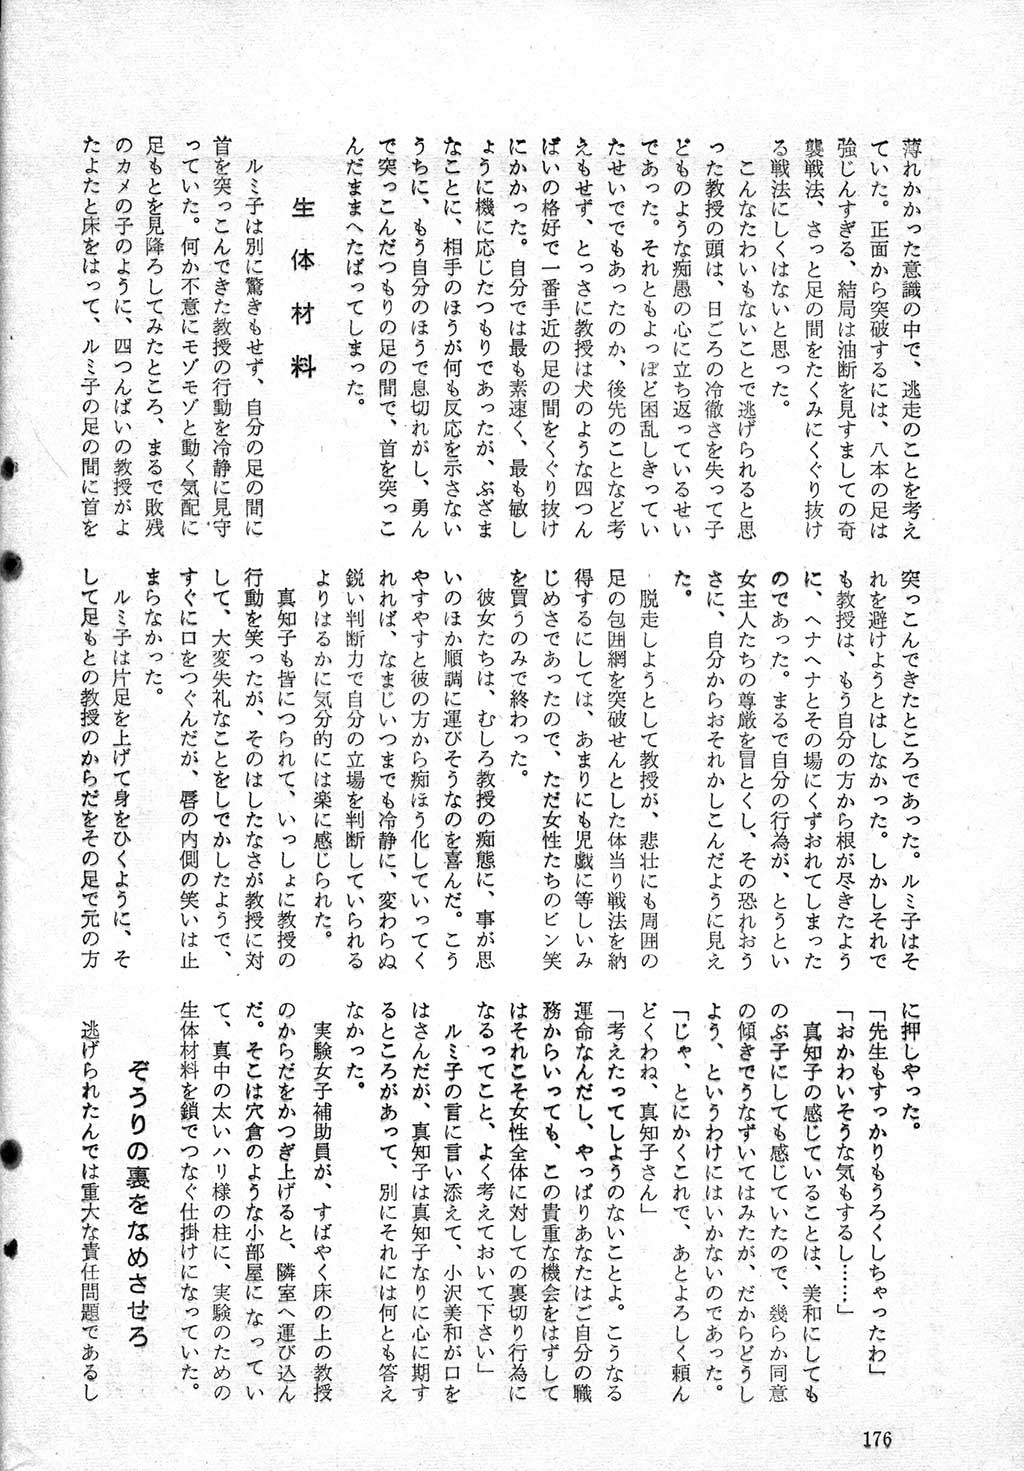 薄れかかった意識の中で、逃走のことを考え
ていた。正面から突破するには、八本の足は
強じんすぎる、結局は油断を見すましての奇
襲戦法、さっと足の間をたくみにくぐり抜け
る戦法にしくはないと思った。
こんなたわいもないことで逃げられると思
った教授の頭は、日ごろの冷徹さを失って子
どものような痴愚の心に立ち返っているせい
であった。それともよっぽど困乱しきってい
たせいででもあったのか、後先のことなど考
えもせず、とっさに教授は犬のような四つん
ばいの格好で一番手近の足の間をくぐり抜け
にかかった。自分では最も素速く、最も敏し
ょうに機に応じたつもりであったが、ぶざま
なことに、相手のほうが何も反応を示さない
うちに、もう自分のほうで息切れがし、勇ん
で突っこんだつもりの足の間で、首を突っこ
んだままへたばってしまった。
生体材料
ルミ子は別に驚きもせず、自分の足の間に
首を突っこんできた教授の行動を冷静に見守
っていた。何か不意にモゾモゾと動く気配に
足もとを見降ろしてみたところ、まるで敗残
のカメの子のように、四つんばいの教授がよ
たよたと床をはって、ルミ子の足の間に首を
突っこんできたところであった。ルミ子はそ
れを避けようとはしなかった。しかしそれで
も教授は、もう自分の方から根が尽きたよう
に、ヘナヘナとその場にくずおれてしまった
のであった。まるで自分の行為が、とうとい
女主人たちの尊厳を冒とくし、その恐れおう
さに、自分からおそれかしこんだように見え
た。
脱走しようとして教授が、悲壮にも周囲の
足の包囲網を突破せんとした体当り戦法を納
得するにしては、あまりにも児戯に等しいみ
じめさであったので、ただ女性たちのビン笑
を買うのみで終わった。
彼女たちは、むしろ教授の痴態に、事が思
いのほか順調に運びそうなのを喜んだ。こう
やすやすと彼の方から痴ほう化していってく
れれば、なまじいつまでも冷静に、変わらぬ
鋭い判断力で自分の立場を判断していられる
よりはるかに気分的には楽に感じられた。
真知子も皆につられて、いっしょに教授の
行動を笑ったが、そのはしたなさが教授に対
して、大変失礼なことをしでかしたようで、
すぐに口をつぐんだが、唇の内側の笑いは止
まらなかった。
ルミ子は片足を上げて身をひくように、そ
して足もとの教授のからだをその足で元の方
に押しやった。
「先生もすっかりもうろくしちゃったわ」
「おかわいそうな気もするし……」
真知子の感じていることは、美和にしても
のぶ子にしても感じていたので、幾らか同意
の傾きでうなずいてはみたが、だからどうし
よう、というわけにはいかないのであった。
「じゃ、とにかくこれで、あとよろしく頼ん
どくわね、真知子さん」
「考えたってしようのないことよ。こうなる
運命なんだし、やっぱりあなたはご自分の職
務からいっても、この貴重な機会をはずして
はそれこそ女性全体に対しての裏切り行為に
なるってこと、よく考えておいて下さい」
ルミ子の言に言い添えて、小沢美和が口を
はさんだが、真知子は真知子なりに心に期す
るところがあって、別にそれには何とも答え
なかった。
実験女子補助員が、すばやく床の上の教授
のからだをかつぎ上げると、隣室へ運び込ん
だ。そこは穴倉のような小部屋になってい
て、真中の太いハリ様の柱に、実験のための
生体材料を鎖でつなぐ仕掛けになっていた。
ぞうりの裏をなめさせろ
逃げられたんでは重大な責任問題であるし
176